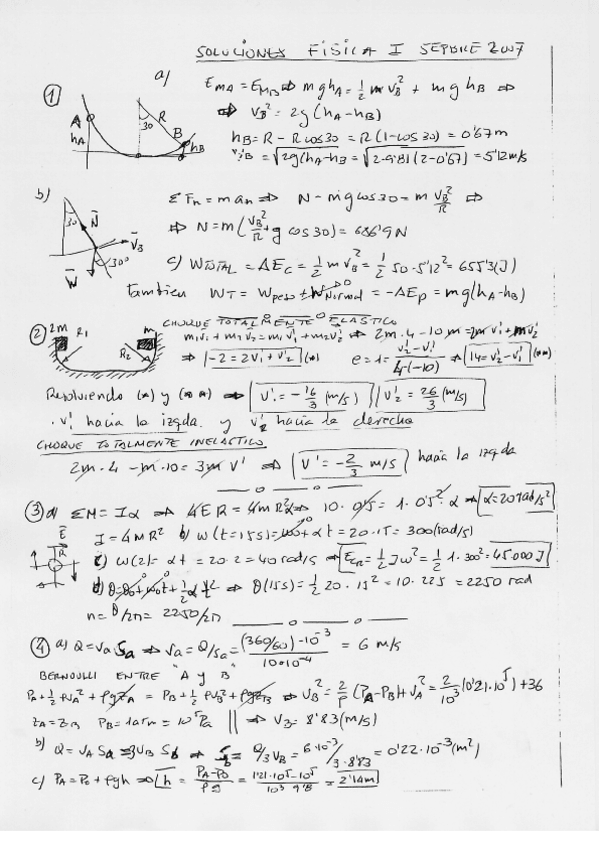 SOLUCIONES FISICA I SEPBRE 2007
① a) E_MA = E_MB ⇒ mgh_A = 1/2 m v_B² + mgh_B ⇒
⇒ v_B² = 2g(h_A - h_B)
h_B = R - R cos30 = R(1-cos30) = 0'67m
v_B = √2g(h_A-h_B = √2·9'81(2-0'67) = 5'12m/s
A h_A 30 R B h_B
b) ΣF_n = ma_n ⇒ N - mg cos30 = m v_B²/R ⇒
⇒ N = m(v_B²/R + g cos30) = 686'9N
30 N V_B W 30°
c) W_TOTAL = ΔE_c = 1/2 m v_B² = 1/2 50·5'12² = 655'3(J)
tambien W_T = W_peso + W_Normal = -ΔE_p = mg(h_A-h_B)
CHOQUE TOTALMENTE ELASTICO
② 2m R₁ m R₂ m₁v₁ + m₂v₂ = m₁v₁' + m₂v₂' ⇒ 2m·4 - 10m = 2m v₁' + m v₂'
⇒ -2 = 2v₁' + v₂' (*) e = 1 = v₂'-v₁'/4-(-10) ⇒ 14 = v₂'-v₁' (**)
Resolviendo (*) y (**) ⇒ v₁' = -16/3 (m/s) // v₂' = 26/3 (m/s)
· v₁' hacia la izqda. y v₂' hacia la derecha
CHOQUE TOTALMENTE INELASTICO
2m·4 - m·10 = 3m v' ⇒ v' = -2/3 m/s hacia la izqda
③ a) ΣM = Iα ⇒ 4ER = 4mR²α ⇒ 10·0'5 = 1·0'5²·α ⇒ α = 20 rad/s²
I = 4MR² b) w(t=15s) = w₀ + αt = 20·15 = 300(rad/s)
E R c) w(2) = αt = 20·2 = 40 rad/s ⇒ E_CR = 1/2 Iw² = 1/2 1·300² = 45000 J
d) θ = θ₀ + w₀t + 1/2 αt² ⇒ θ(15s) = 1/2 20·15² = 10·225 = 2250 rad
n = θ/2π = 2250/2π
④ a) Q = v_a S_a ⇒ v_a = Q/S_a = (360/60)·10⁻³/10·10⁻⁴ = 6 m/s
BERNOULLI ENTRE "A y B"
P_A + 1/2 ρv_A² + ρgz_A = P_B + 1/2 ρv_B² + ρgz_B ⇒ v_B² = 2/ρ (P_A-P_B) + v_A² = 2/10³ (0'21·10⁵) + 36
z_A = z_B P_B = 1atm = 10⁵Pa || ⇒ v_B = 8'83(m/s)
b) Q = v_A S_a = 3v_B S_b ⇒ S_b = Q/3v_B = 6·10⁻³/3·8'83 = 0'22·10⁻³(m²)
c) P_A = P₀ + ρgh ⇒ h = P_A-P₀/ρg = 1'21·10⁵-10⁵/10³ 9'8 = 2'14m